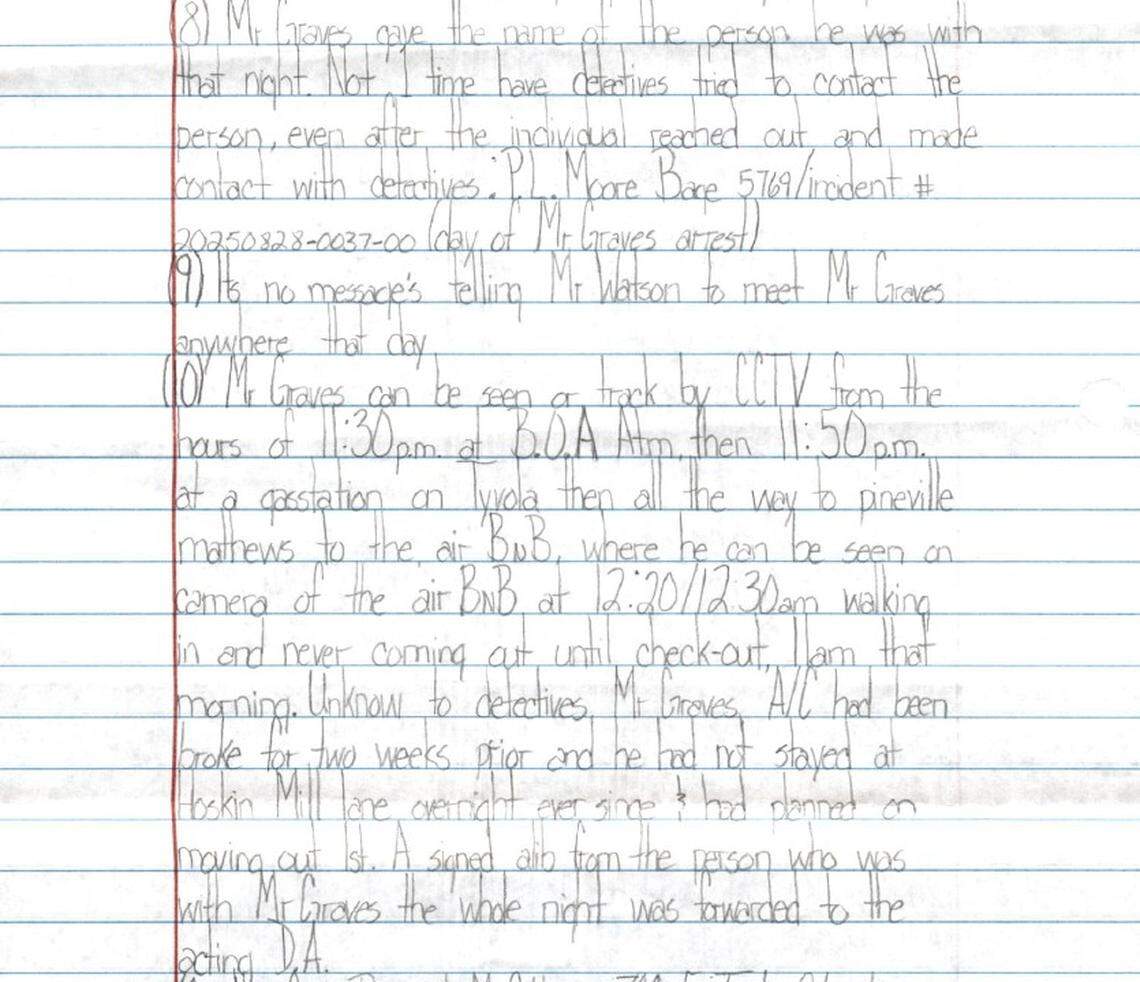 (8) Mr Graves gave the name of the person he was with
that night. Not 1 time have detectives tried to contact the
person, even after the individual reached out and made
contact with detectives. P.L. Moore Bage 5769/incident #
20250828-0037-00 (day of Mr Graves arrest)
(9) Its no message's telling Mr Watson to meet Mr Graves
anywhere that day
(10) Mr Graves can be seen or track by CCTV from the
hours of 11:30p.m. at B.O.A Atm, then 11:50p.m.
at a gasstation on Tyvola then all the way to pineville
mathews to the air BNB, where he can be seen on
camera of the air BNB at 12:20//12:30am walking
in and never coming out until check-out, 11am that
morning. Unknow to detectives, Mr Graves, A/C had been
broke for two weeks prior and he had not stayed at
Hoskin Mill lane overnight ever since & had planned on
moving out 1st. A signed alib from the person who was
with Mr Graves the whole night was forwarded to the
acting D.A.